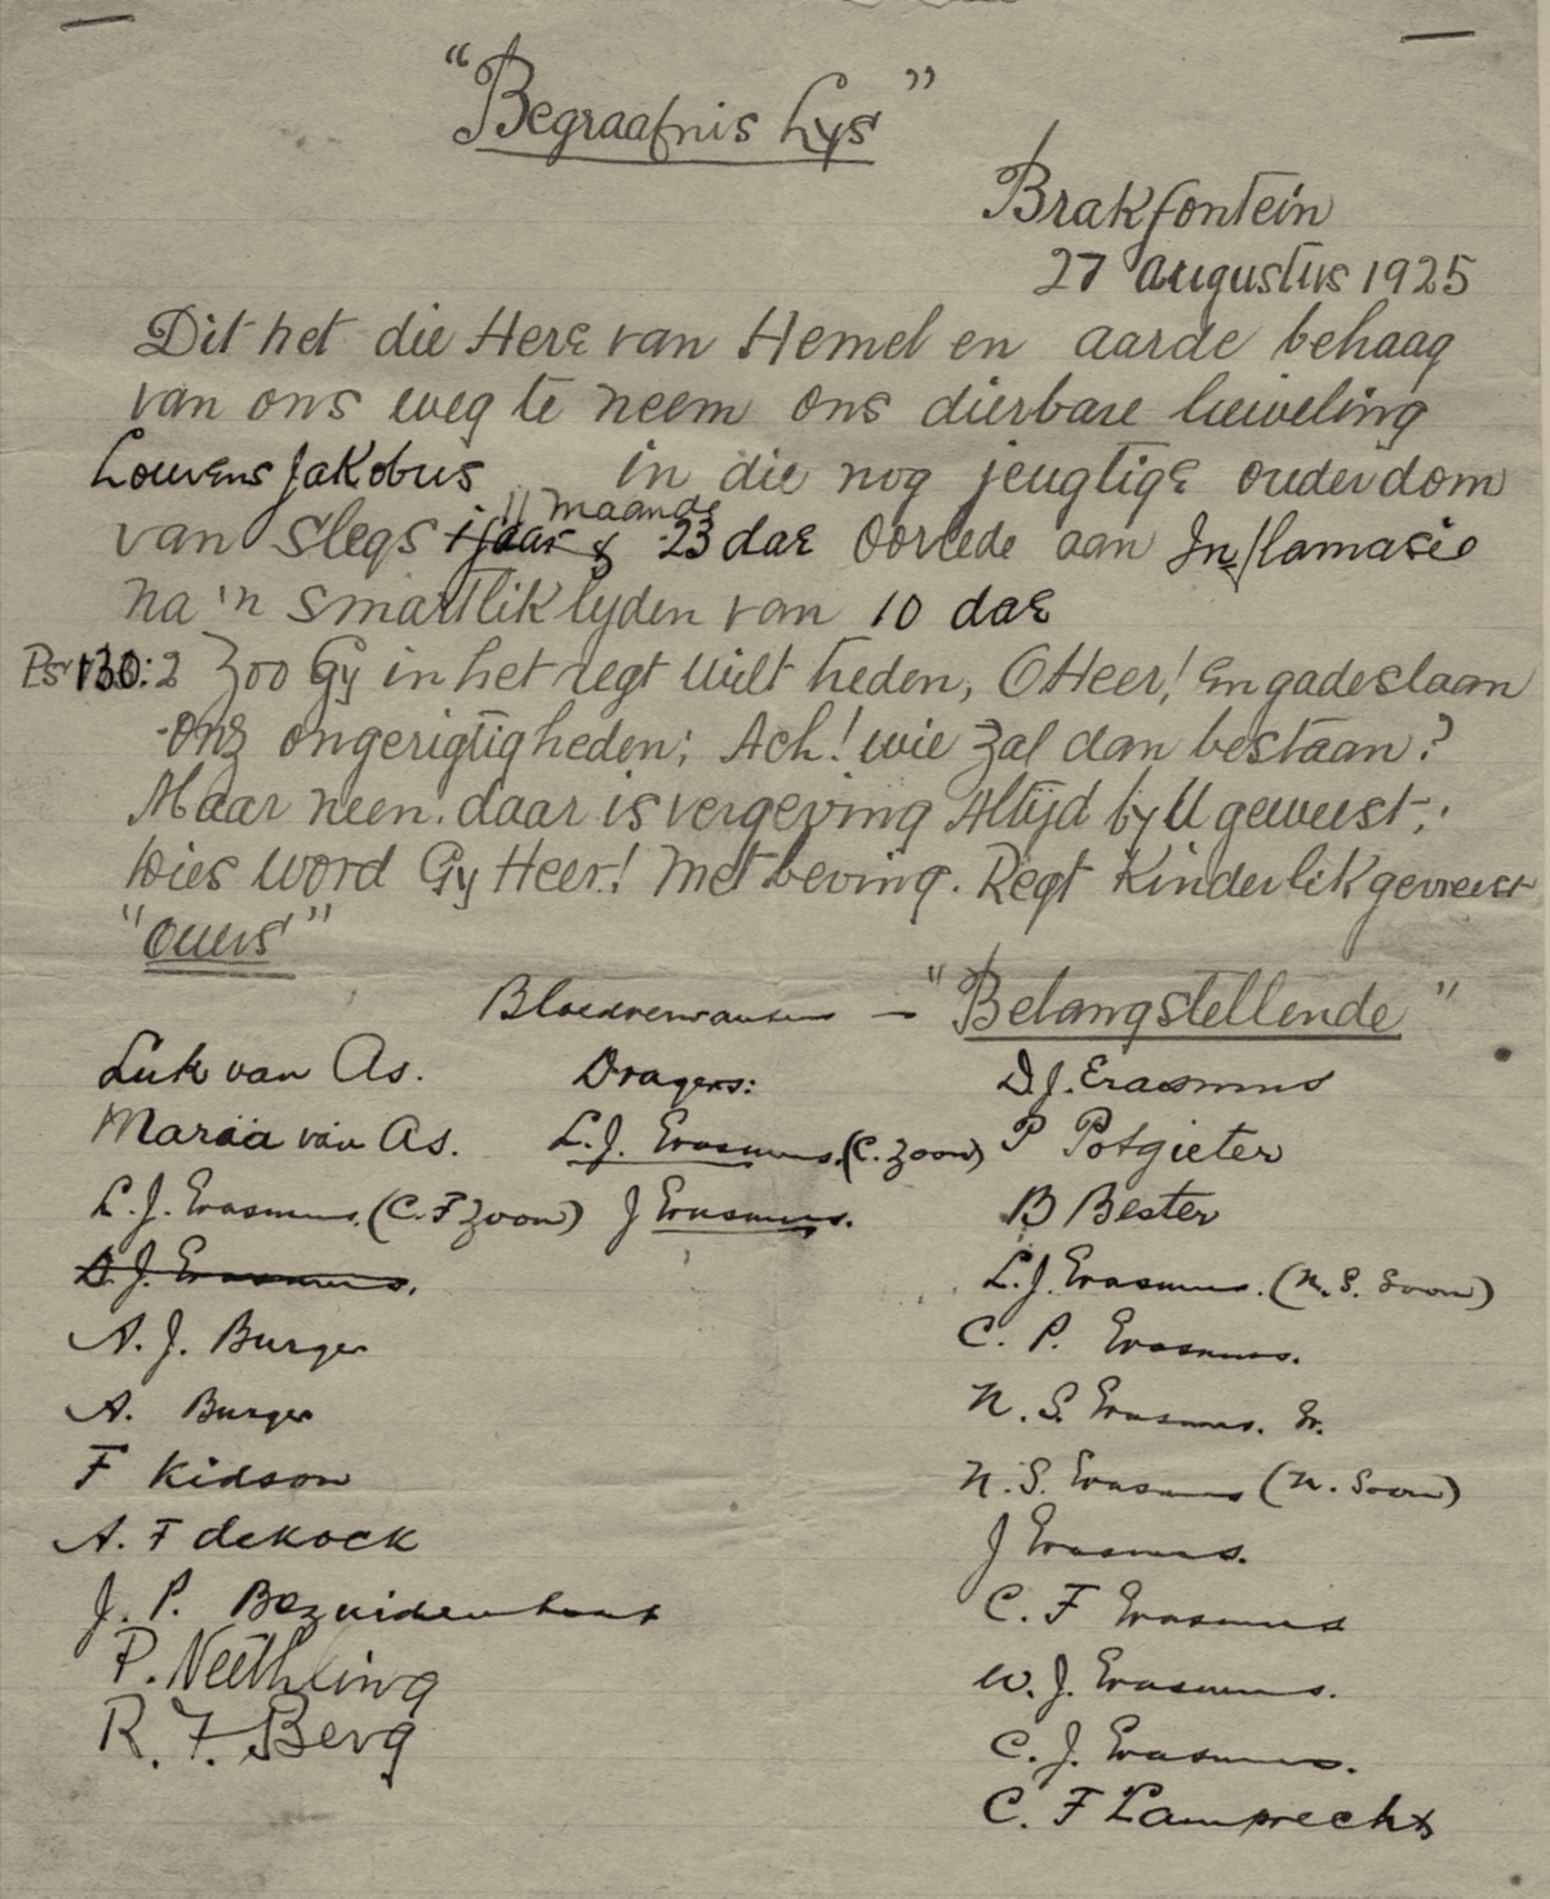 "Begraafnis Lys"
Brakfontein
27 Augustus 1925
Dit het die Here van Hemel en aarde behaag
van ons weg te neem ons dierbare lieweling
Louwens Jakobus in die nog jeugtige ouderdom
11 maande
van slegs 1 jaar & 23 dae Oorlede aan Inflamasie
na 'n smartlik lyden van 10 dae
Ps 130:2 Zoo Gy in het regt wilt treden, O Heer! En gadeslaan
Onz ongerigtigheden; Ach! wie zal dan bestaan?
Maar neen. daar is vergeving Altijd by U geweest;
Dies word Gy Heer! Met beving. Regt Kinderlik gevreest
"Ouers"
Bloedverwanten — "Belangstellende"
Luk van As. Dragers: D.J. Erasmus
Maria van As. L.J. Erasmus. (C. zoon) P Potgieter
L.J. Erasmus. (C.F zoon) J Erasmus. B Bester
D.J. Erasmus. L.J. Erasmus. (N.S. Soon)
A.J. Burger C. P. Erasmus.
A. Burger N.S. Erasmus. Sr.
F Kidson N.S. Erasmus (N. Soon)
A. F de Kock J Erasmus.
J. P. Bezuidenhout C. F Erasmus
P. Neethling W. J. Erasmus.
R. F. Berg C. J. Erasmus.
C. F Lamprecht